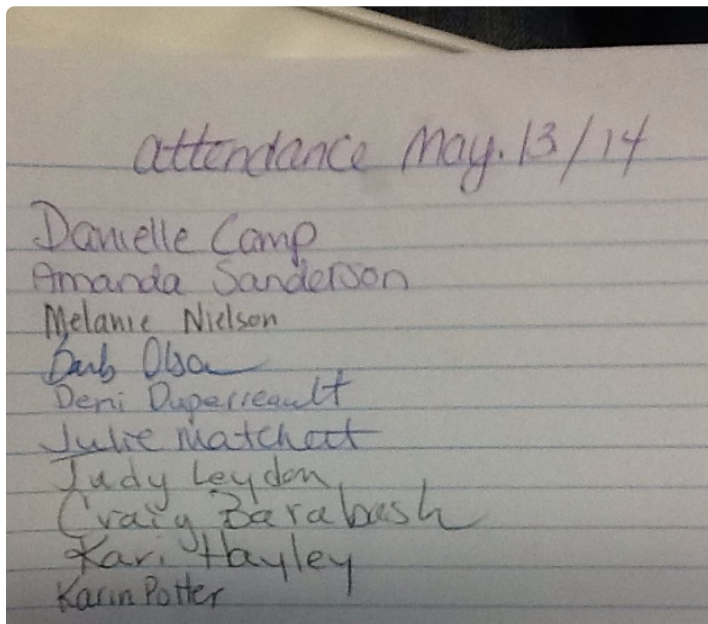 attendance May. 13/14
Danielle Camp
Amanda Sanderson
Melanie Nielson
Barb Olson
Demi Duperreault
Julie Matchett
Judy Leydon
Craig Barabash
Kari Hayley
Karin Potter